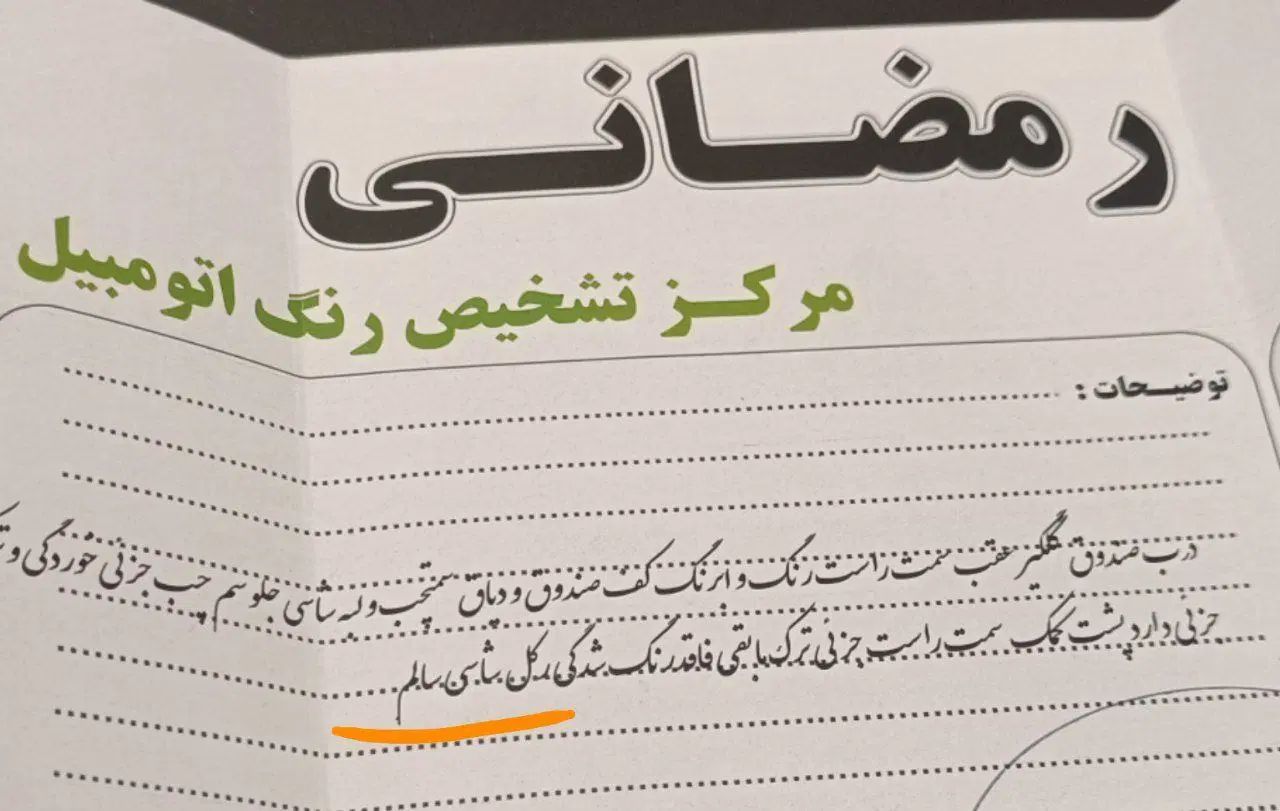 رمضانی
مرکز تشخیص رنگ اتومبیل
توضیحات :
درب صندوق گلگیر عقب سمت راست رنگ و ابرنگ کف صندوق و دیاق سمتچب و لبه شاسی جلو سم چب جزئی خوردگی و
جزئی دارد پشت کمک سمت راست جزئی ترک مابقی فاقد رنگ شدگی رکل شاسی سالم